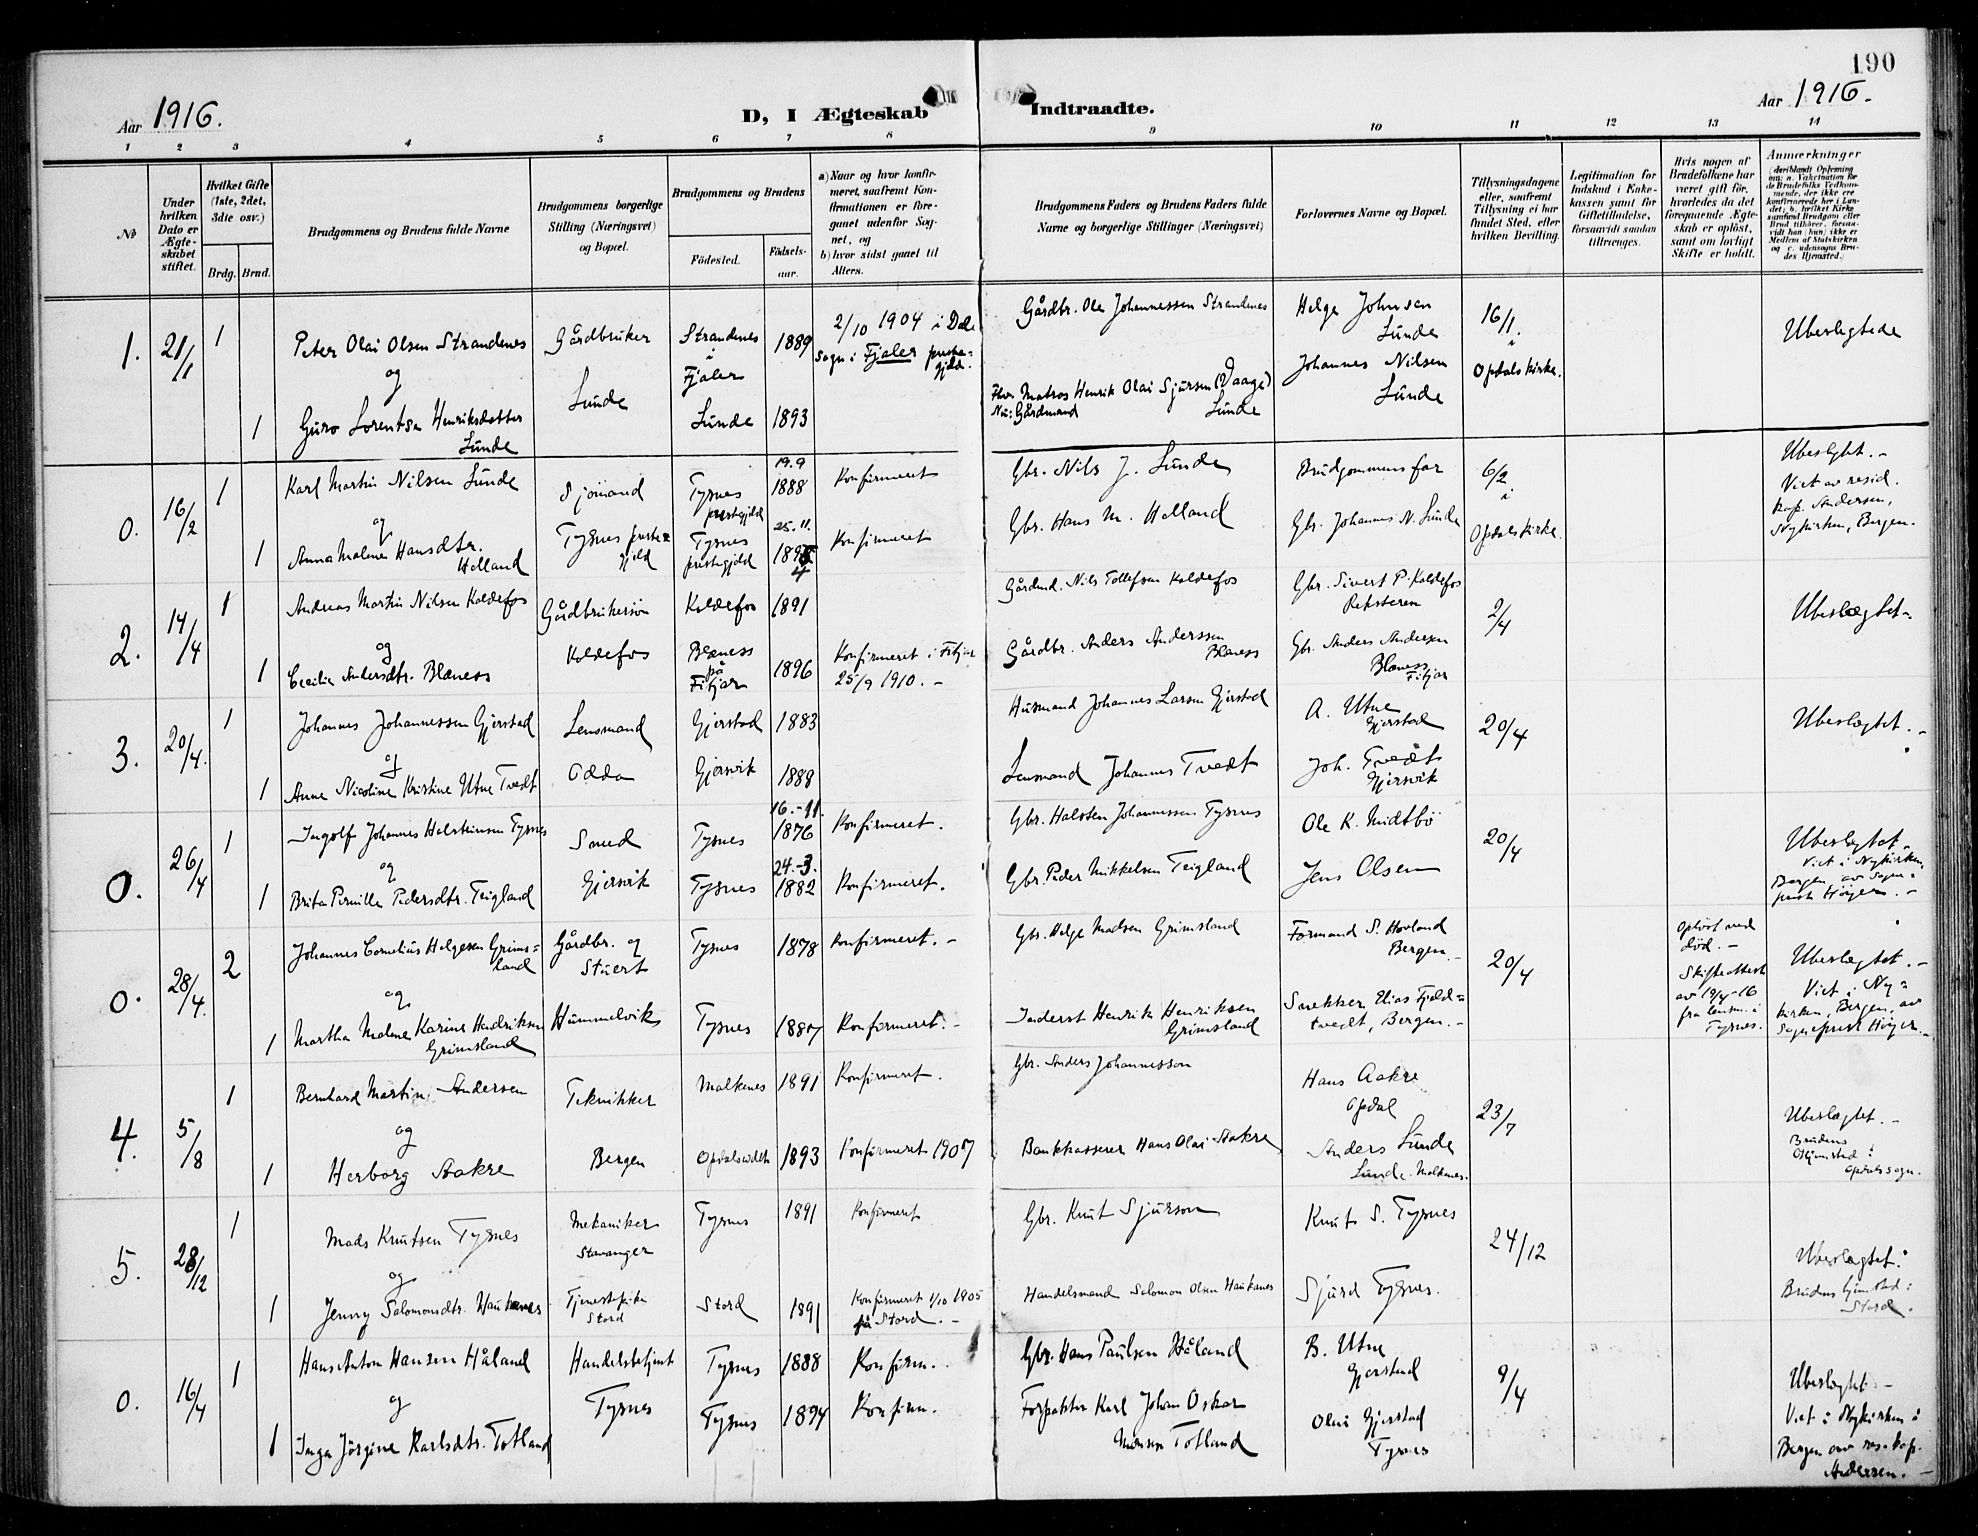 190
Aar 1916.
D, I Ægteskab
Indtraadte.
Aar 1916.
1 2 3 4 5 6 7 8 9 10 11 12 13 14
No
Under hvilken Dato er Ægteskabet stiftet.
Hvilket Gifte (1ste, 2det, 3die osv.)
Brdg. Brud.
Brudgommens og Brudens fulde Navne
Brudgommens borgerlige Stilling (Næringsvei) og Bopæl.
Brudgommens og Brudens
Fødested.
Fødselsaar.
a) Naar og hvor konfirmeret, saafremt Konfirmationen er foregaaet udenfor Sognet, og
b) hvor sidst gaaet til Alters.
Brudgommens Faders og Brudens Faders fulde Navne og borgerlige Stillinger (Næringsvei)
Forlovernes Navne og Bopæl.
Tillysningsdagene eller, saafremt Tillysning ei har fundet Sted, efter hvilken Bevilling.
Legitimation for Indskud i Enkekassen samt for Giftetilladelse, forsaavidt saadan tiltrænges.
Hvis nogen af Brudefolkene har været gift før, hvorledes da det foregaaende Ægteskab er opløst, samt om lovligt Skifte er holdt.
Anmærkninger
1. 21/1 1
Peter Olai Olsen Strandenes
og
1 Guro Lorentse Henriksdatter
Lunde
Gårdbruker
Lunde
Strandenes
i
Fjaler
1889
Lunde 1893
2/10 1904 i Dale
sogn i Fjaler prestegjeld.
Gårdbr. Ole Johannessen Strandenes
Matros Henrik Olai Sjursen (Vaage)
Nu: Gårdmand Lunde
Helge Johnsen
Lunde
Johannes Nilsen
Lunde
16/1 i
Opdals kirke.
Ubeslegtede
0. 16/2 1
Karl Martin Nilsen Lunde
og
1 Anna Malene Hansdtr.
Helland
Sjömand
Tysnes prestegjeld
Tysnes
prestegjeld
19.9
1888
Tysnes
prestegjeld
25.11.
Konfirmeret
Konfirmeret
Gbr. Nils J. Lunde
Gbr. Hans M. Helland
Brudgommens far
Gbr. Johannes N. Lunde
6/2 i
Opdals kirke.
Ubeslegtet. -
Viet av resid.
kap. Andersen,
Nykirken, Bergen.
2. 14/4 1
Andreas Martin Nilsen Koldefos
og
1 Cecilie Andersdtr. Blaness
Gårdbrukersön
Koldefos
Koldefos 1891
Blaness
på
Fitjar 1896
Konfirmeret i Fitjar
25/9 1910. -
Gårdmd. Nils Tollefsen Koldefos
Gårdbr. Anders Anderssen
Blaness
Gbr. Sivert P. Koldefos
Reksteren
Gbr. Anders Andersen
Blaness
Fitjar
2/4
Ubeslægtet-
3. 20/4. 1
Johannes Johannessen Gjerstad
og
1 Anne Nicoline Kristine Utne Tvedt
Lensmand
Odda
Gjerstad 1883
Gjersvik 1888
Husmand Johannes Larsen Gjerstad
Lensmand Johannes Tvedt
A. Utne
Gjerstad
Joh. Tvedt
Gjersvik
20/4
Ubeslegtet.
0. 26/4 1
Ingolf Johannes Halsteinsen Tysnes
og
1 Brita Pernille Pedersdtr. Teigland
Smed
Gjersvik
Tysnes
16.-11.
1876
Tysnes
24.-3.
1882
Konfirmeret.
Konfirmeret.
Gbr. Halsten Johannessen Tysnes
Gbr. Peder Mikkelsen Teigland
Ole K. Midtbö
Jens Olsen
20/4
Ubeslegtet-
Viet i Nykirken,
Bergen av Sogneprest Höyer. -
0. 28/4. 2
Johannes Cornelius Helgesen Grimsland
og
1 Martha Malene Karine Hendriksen
Grimsland
Gårdbr. og
Stuert
Hummelvik
Tysnes 1878
Tysnes 1887
Konfirmeret. -
Konfirmeret. -
Gbr. Helge Madsen Grimsland
Inderst Henrik Henriksen
Grimsland
Formand S. Hovland
Bergen. -
Snekker Elias Fjeldtvedt, Bergen. -
20/4
Oplöst ved
död. -
Skifteattest
av 19/4-16
fra lensm. i
Tysnes.
Ubeslegtet. -
Viet i Nykirken, Bergen, av
Sogneprest Höyer. -
4. 5/8 1
Bernhard Martin Andersen
og
1 Herborg Aakre
Teknikker
Bergen
Malkenes 1891
Opdalseidet 1893
Konfirmeret.
Konfirmeret 1907
Gbr. Anders Johannesson
Bankkasserer Hans Olai Aakre
Hans Aakre
Opdal
Anders Lunde
Lunde. Malkenes.
23/7
Ubeslegtet. -
Brudens
Hjemsted:
Opdals sogn.
5. 28/12 1
Mads Knutsen Tysnes
og
1 Jenny Salomonsdtr. Haukanes
Mekaniker
Stavanger
Tjenestepike
Stord
Tysnes 1891
Stord 1891
Konfirmeret
Konfirmeret 1/10 1905
på Stord. -
Gbr. Knut Sjurson
Handelsmand Salomon Olsen Haukanes
Knut S. Tysnes
Sjurd Tysnes.
24/12
Ubeslegtet.
Brudens hjemsted:
Stord.
0. 16/4 1
Hans Anton Hansen Håland
og
1 Inga Jörgine Karlsdtr. Totland
Handelsbetjent
Tysnes
Tysnes 1888
Tysnes 1894
Konfirm.
Konfirm.
Gbr. Hans Paulsen Håland
Forpakter Karl Johan Oskar
Monsen Totland
B. Utne
Gjerstad
Olai Gjerstad
Tysnes
9/4
Ubeslegtet -
Viet i Nykirken i
Bergen av res. kap.
Andersen. -